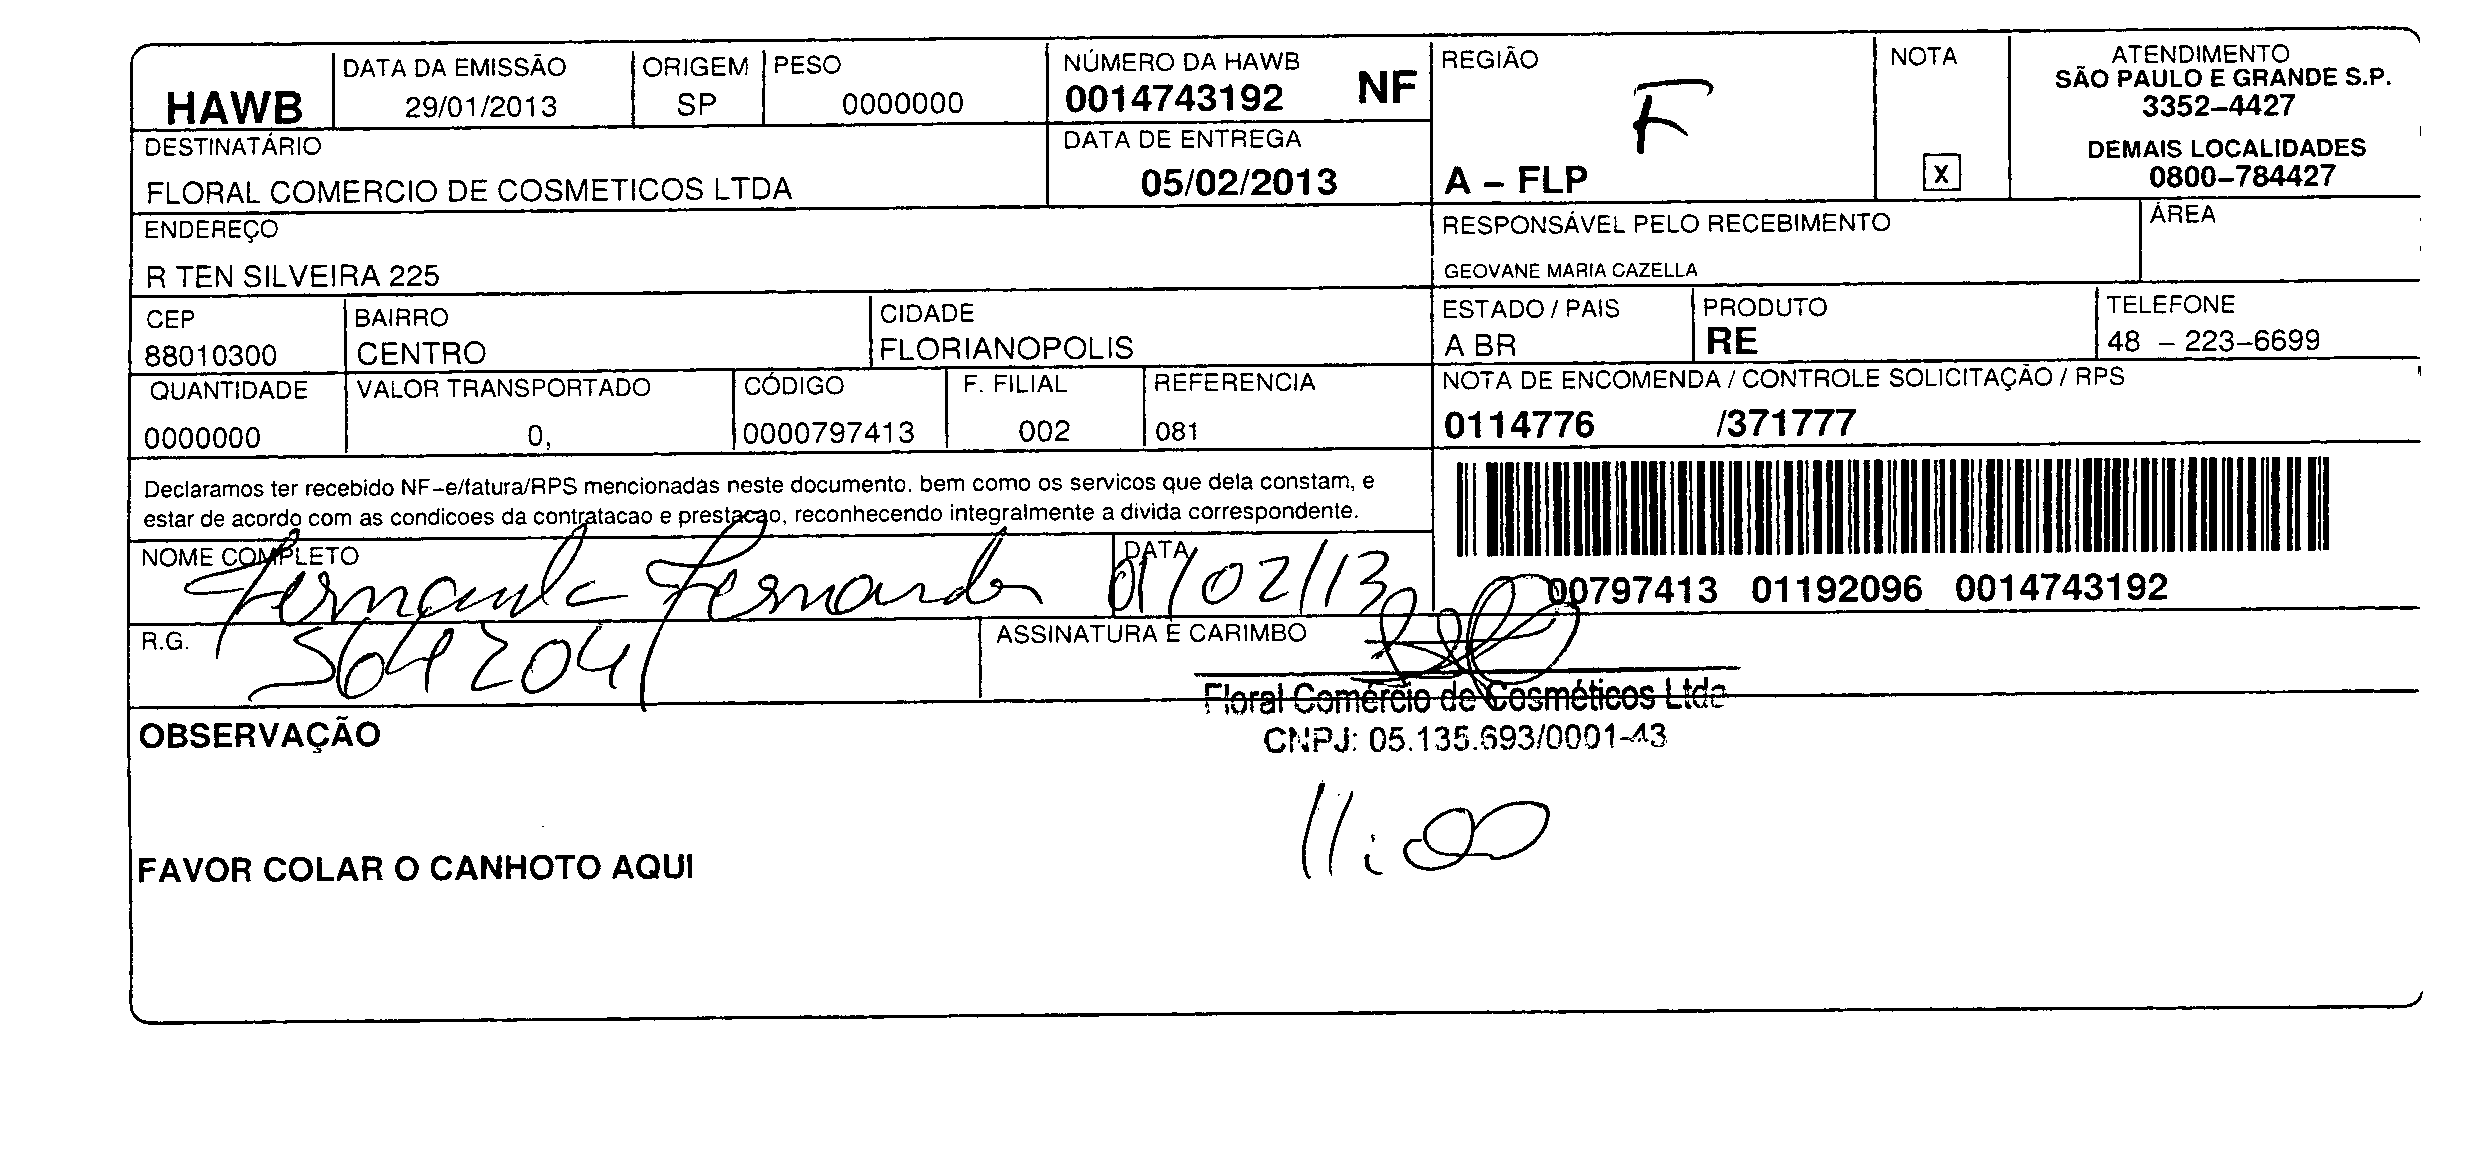 HAWB
DATA DA EMISSÃO
29/01/2013
ORIGEM
SP
PESO
0000000
NÚMERO DA HAWB
0014743192 NF
DATA DE ENTREGA
05/02/2013
REGIÃO
F
A – FLP
NOTA
X
ATENDIMENTO
SÃO PAULO E GRANDE S.P.
3352–4427
DEMAIS LOCALIDADES
0800–784427
DESTINATÁRIO
FLORAL COMERCIO DE COSMETICOS LTDA
ENDEREÇO
R TEN SILVEIRA 225
RESPONSÁVEL PELO RECEBIMENTO
GEOVANE MARIA CAZELLA
ÁREA
CEP
88010300
BAIRRO
CENTRO
CIDADE
FLORIANOPOLIS
ESTADO / PAIS
A BR
PRODUTO
RE
TELEFONE
48 – 223–6699
QUANTIDADE
0000000
VALOR TRANSPORTADO
0,
CÓDIGO
0000797413
F. FILIAL
002
REFERENCIA
081
NOTA DE ENCOMENDA / CONTROLE SOLICITAÇÃO / RPS
0114776 /371777
Declaramos ter recebido NF–e/fatura/RPS mencionadas neste documento. bem como os servicos que dela constam, e
estar de acordo com as condicoes da contratacao e prestacao, reconhecendo integralmente a divida correspondente.
00797413 01192096 0014743192
NOME COMPLETO
Fernanda Fernandes
DATA
01/02/13
R.G.
5642041
ASSINATURA E CARIMBO
Floral Comércio de Cosméticos Ltda
CNPJ: 05.135.693/0001-43
OBSERVAÇÃO
11:00
FAVOR COLAR O CANHOTO AQUI